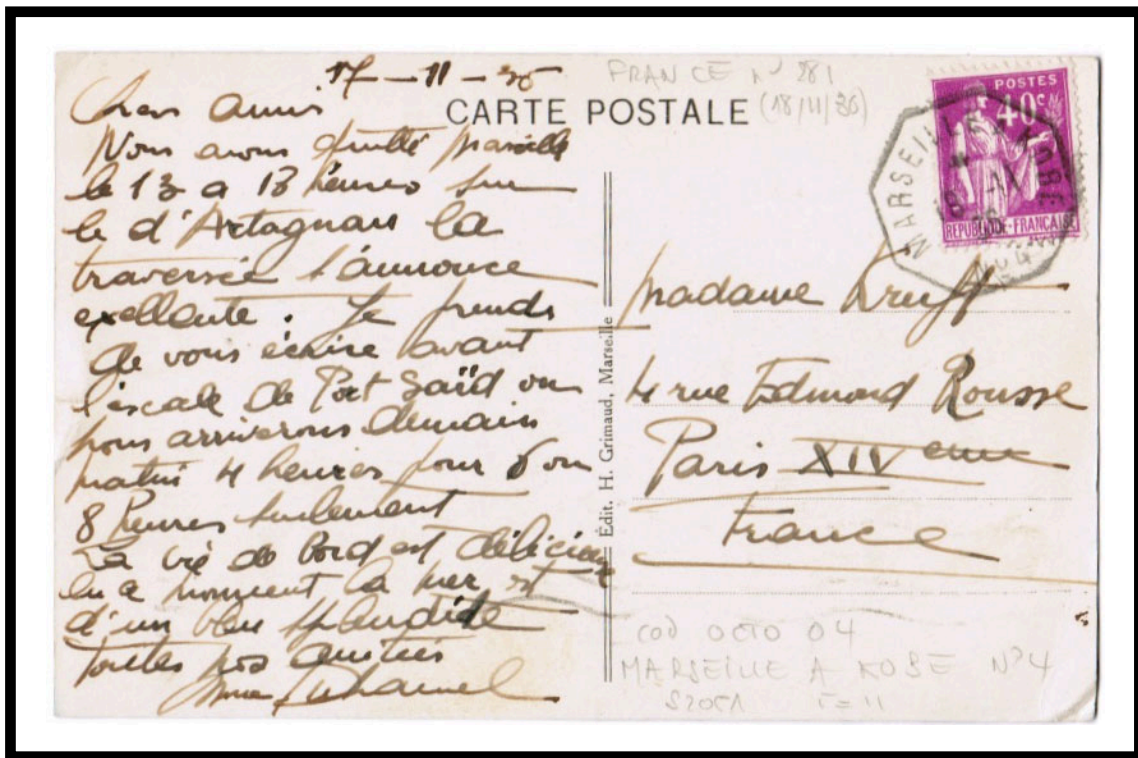 17-11-36
Chers amis
Nous avons quitté Marseille
le 13 a 13 heures sur
le d'Artagnan la
traversée s'annonce
exellente. Je prends
de vous écrire avant
l'escale de Port Saïd ou
nous arriverons demain
matin 4 heures pour 6 ou
8 heures seulement
La vie de bord est délicieuse
en ce moment la mer est
d'un bleu splendide
toutes nos amitiés
Duhamel
FRANCE N° 281
(18/11/36)
CARTE POSTALE
POSTES
40c
REPUBLIQUE-FRANÇAISE
MARSEILLE A KOBE
18 -11
36
Madame Dreyff
4 rue Edmond Rousse
Paris XIV eme
France
Édit. H. Grimaud, Marseille
COD OCTO 04
MARSEILLE A KOBE N°4
I=11